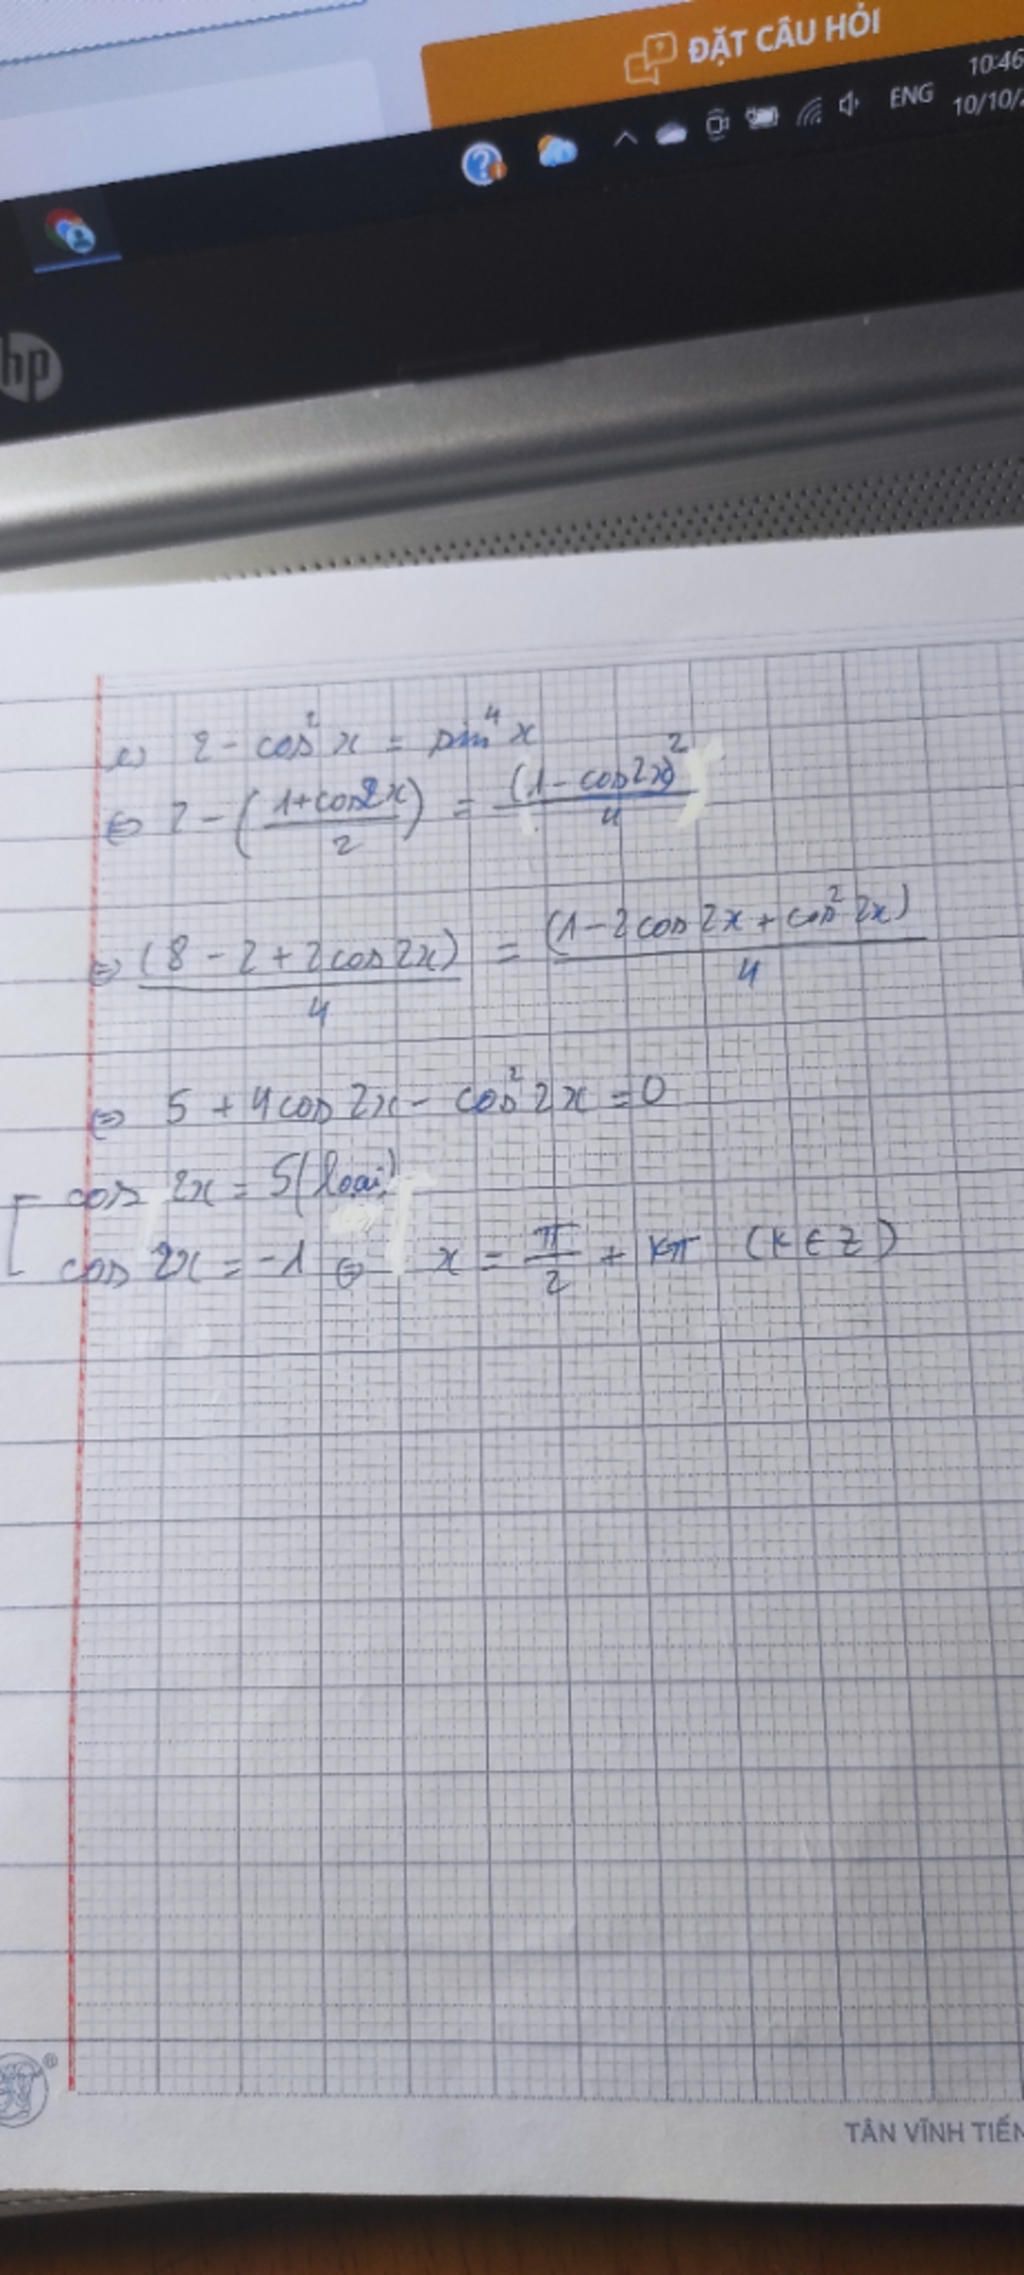 ĐẶT CÂU HỎI
10:46
ENG
10/10/
hp
e) 2 - cos²x = sin⁴x
⇔ 2 - ((1+cos2x)/2) = (1-cos2x)²/4
⇔ (8-2+2cos2x)/4 = (1-2cos2x+cos²2x)/4
⇔ 5 + 4cos2x - cos²2x = 0
[ cos 2x = 5 (loại)
cos 2x = -1 ⇔ x = π/2 + kπ (k∈Z)
TÂN VĨNH TIẾN